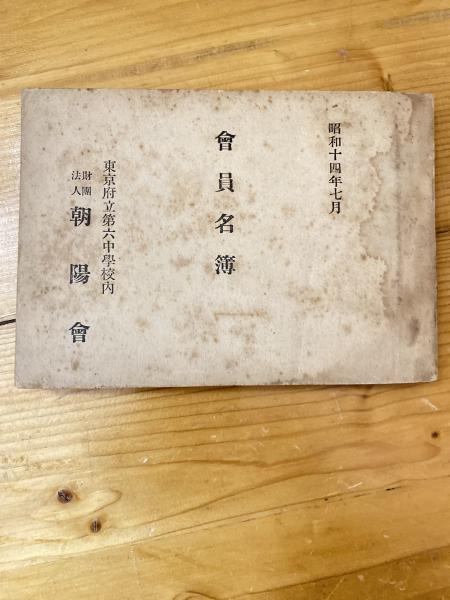 昭和十四年七月
會員名簿
東京府立第六中學校內
財團
法人
朝陽會